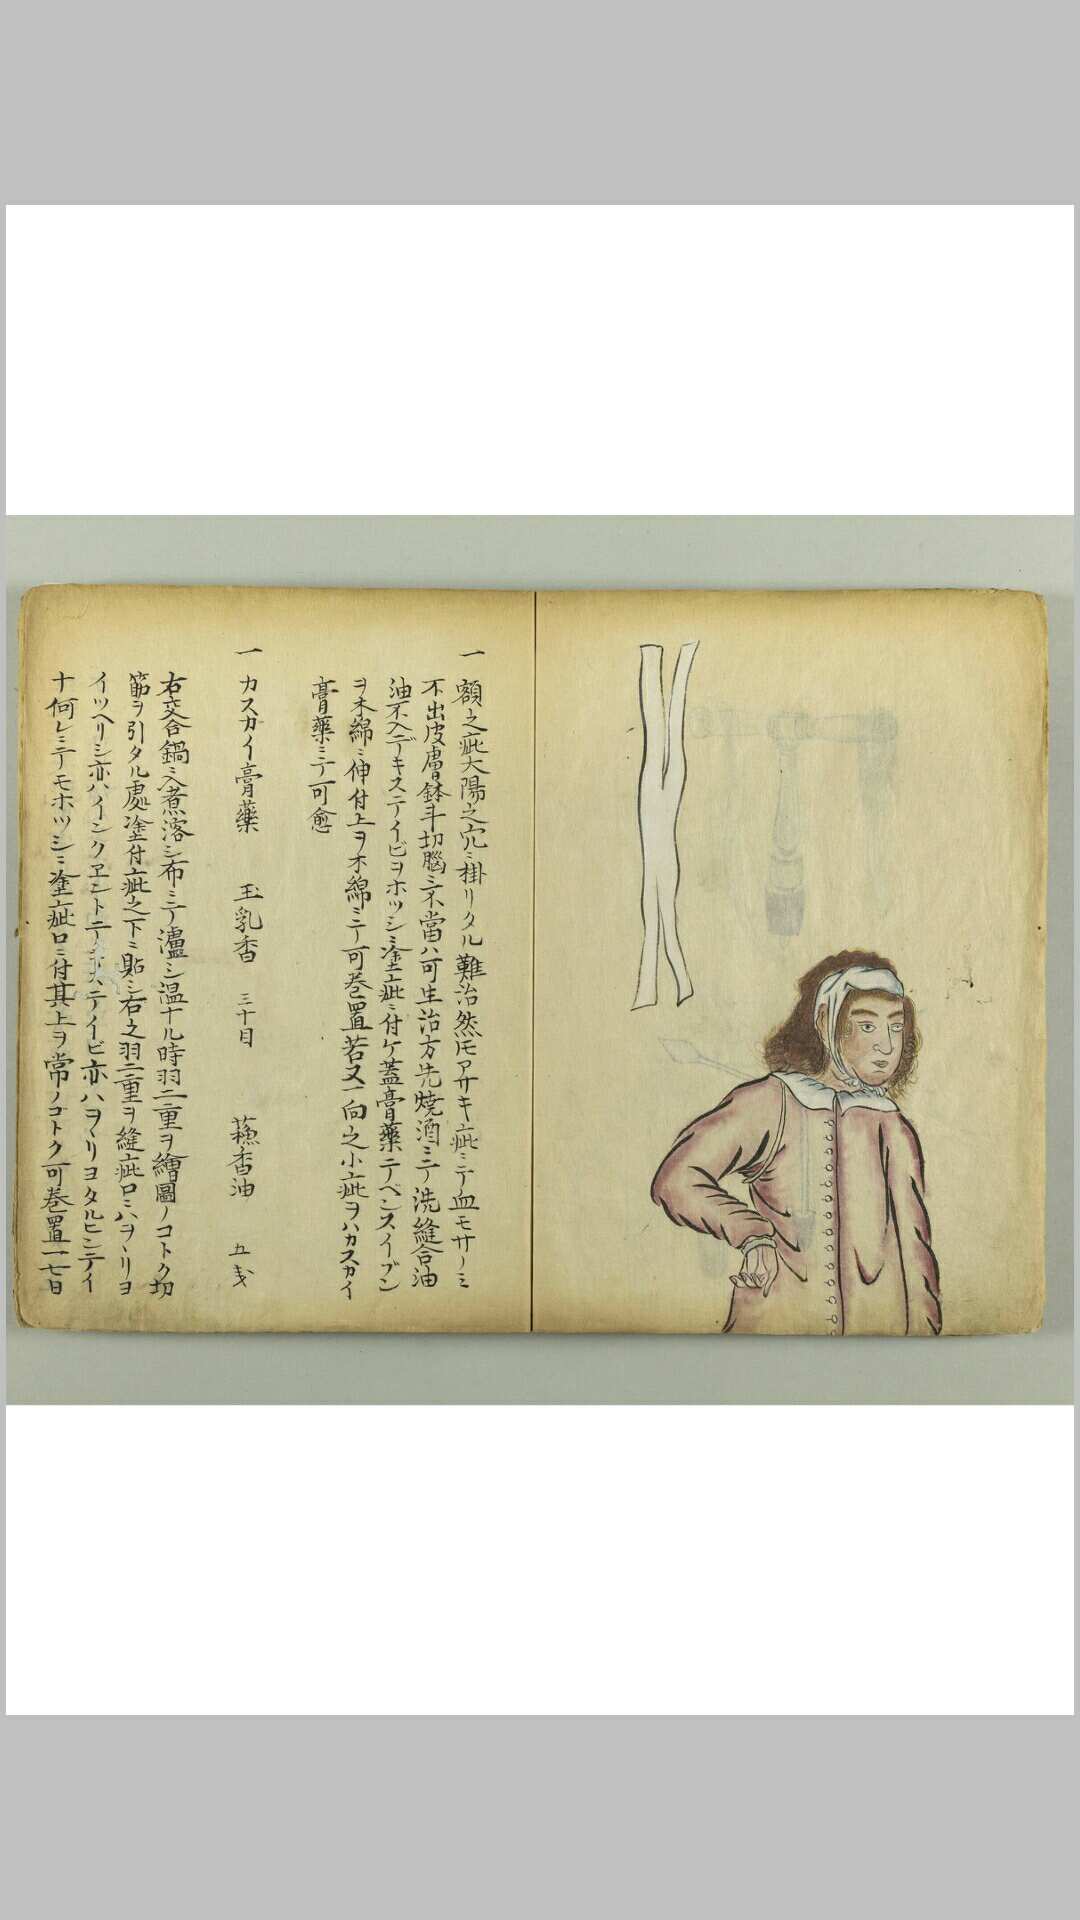 一 額之疵大陽之穴ニ掛リタル難治然𪜈アサキ疵ニテ血モサノミ
不出皮膚鉢斗切腦ニ不當ハ可生治方先焼酒ニテ洗縫合油
油不入デキステイビヲホツシニ塗疵ニ付ケ蓋膏藥テペンスイブン
ヲ木綿ニ伸付上ヲ木綿ニテ可巻置若又一向之小疵ヲハカスカイ
膏藥ニテ可愈
一 カスカイ膏藥 玉乳香 三十目 蘓香油 五戔
右交合鍋ニ入煮溶シ布ニテ瀘シ温ナル時羽二重ヲ繪圖ノコトク切
筋ヲ引タル處塗付疵之下ニ貼シ右之羽二重ヲ縫疵口ニハヲヽリヨ
イツヘリシ亦ハインクヱントテキステイビ亦ハヲヽリヨタルヒンテイ
ナ何レニテモホツシニ塗疵口ニ付其上ヲ常ノコトク可巻置一七日